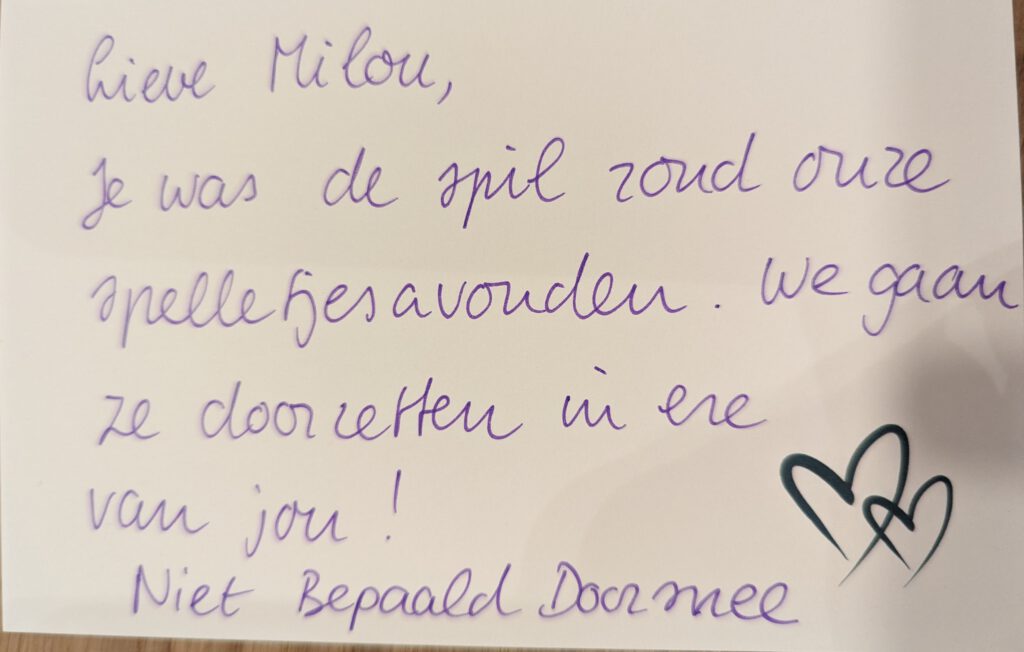 Lieve Milou,
Je was de spil rond onze
spelletjesavonden. We gaan
ze doorzetten in ere
van jou!
Niet Bepaald Doormee